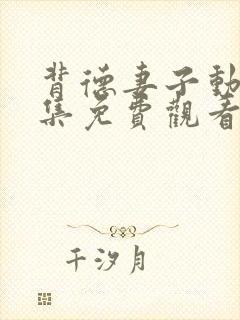 背德妻子動
集免費觀看
千汐月